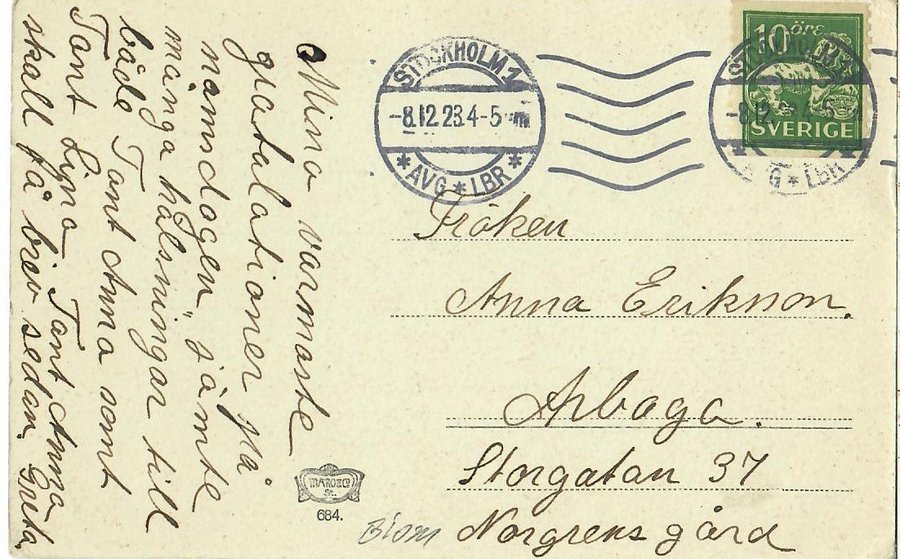 Mina varmaste
gratulationer på
namnsdagen, jämte
många hälsningar till
både Tant Anna samt
Tant Lyna Tant Anna
skall få brev sedan. Greta.
STOCKHOLM 1
-8.12.23.4-5 m
* AVG * LBR *
10 öre
SVERIGE
Fröken
Anna Erikson.
Arboga.
Storgatan 37
Norgrens gård
Blom
684.